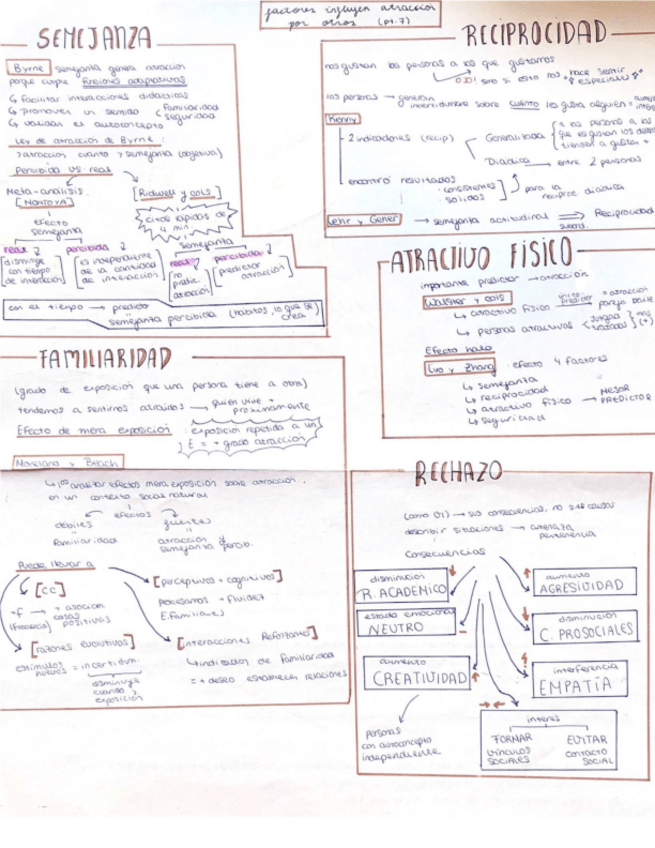 factores influyen atracción
por otros (pt.7)
SEMEJANZA
Byrne semejanza genera atracción
porque cumple funciones adaptativas
↳ facilitar interacciones didácticas
↳ promueven un sentido < familiaridad
seguridad
↳ validan el autoconcepto
Ley de atracción de Byrne :
> atracción cuanto > semejanza (objetiva)
Percibida VS real
Meta-análisis
[MONTOYA]
efecto
semejanza
real percibida
[disminuye
con tiempo
de interacción]
[es independiente
de la cantidad
de interacción]
[Ridwell y cols]
citas rápidas de
4 min
semejanza
real percibida
[no
predic.
atracción]
[predictor
atracción]
con el tiempo → predictor
semejanza percibida (hábitos, lo que se)
crea
FAMILIARIDAD
(grado de exposición que una persona tiene a otra)
tendemos a sentirnos atraídos → quien vive +
proximamente
Efecto de mera exposición : exposición repetida a un
E = + grado atracción
Moreland y Beach
↳ analizar efectos mera exposición sobre atracción.
en un contexto social natural
efectos
débiles fuertes
familiaridad
atracción y
semejanza percib.
Puede llevar a
[CC]
+f → + asocian
(frecuencia) cosas
positivas
[perceptivos + cognitivos]
procesamos + fluidez
E.familiares)
[razones evolutivas]
estímulos
nuevos = incertidum.
disminuye
cuando >
exposición
[interacciones Reforzantes]
↳ indicación de familiaridad
= + deseo establecer relaciones
RECIPROCIDAD
nos gustan las personas a las que gustamos
OJO! sino si esto nos "hace sentir
especiales"
las personas → generan
incertidumbre sobre cuánto les gusta alguien =
Kenny
- 2 indicadores (recip)
Generalizada
a las personas a las
que les gustan los demás
tienden a gustar +
Diádica → entre 2 personas
encontró resultados
· consistentes
· sólidos
para la
reciproc diádica
Lehr y Gener → semejanza actitudinal ⇒ Reciprocidad
ATRACTIVO FÍSICO
importante predictor → atracción
Walster y cols
↳ atractivo físico → único
predictor + atracción
pareja baile
↳ personas atractivas < juzgadas
tratadas } mas
(+)
Efecto halo
Luo y Zhang : efecto 4 factores
↳ semejanza
↳ reciprocidad
↳ atractivo físico → MEJOR
PREDICTOR
↳ seguridad
RECHAZO
(como OJ) → sus consecuencias, no sus causas
describir situaciones → amenaza
pertenencia
Consecuencias
disminución
R. ACADEMICO
estado emocional
NEUTRO
aumento
CREATIVIDAD
personas
con autoconcepto
independiente
aumento
AGRESIVIDAD
disminución
C. PROSOCIALES
interferencia
EMPATÍA
interés
FORMAR EVITAR
VÍNCULOS CONTACTO
SOCIALES SOCIAL